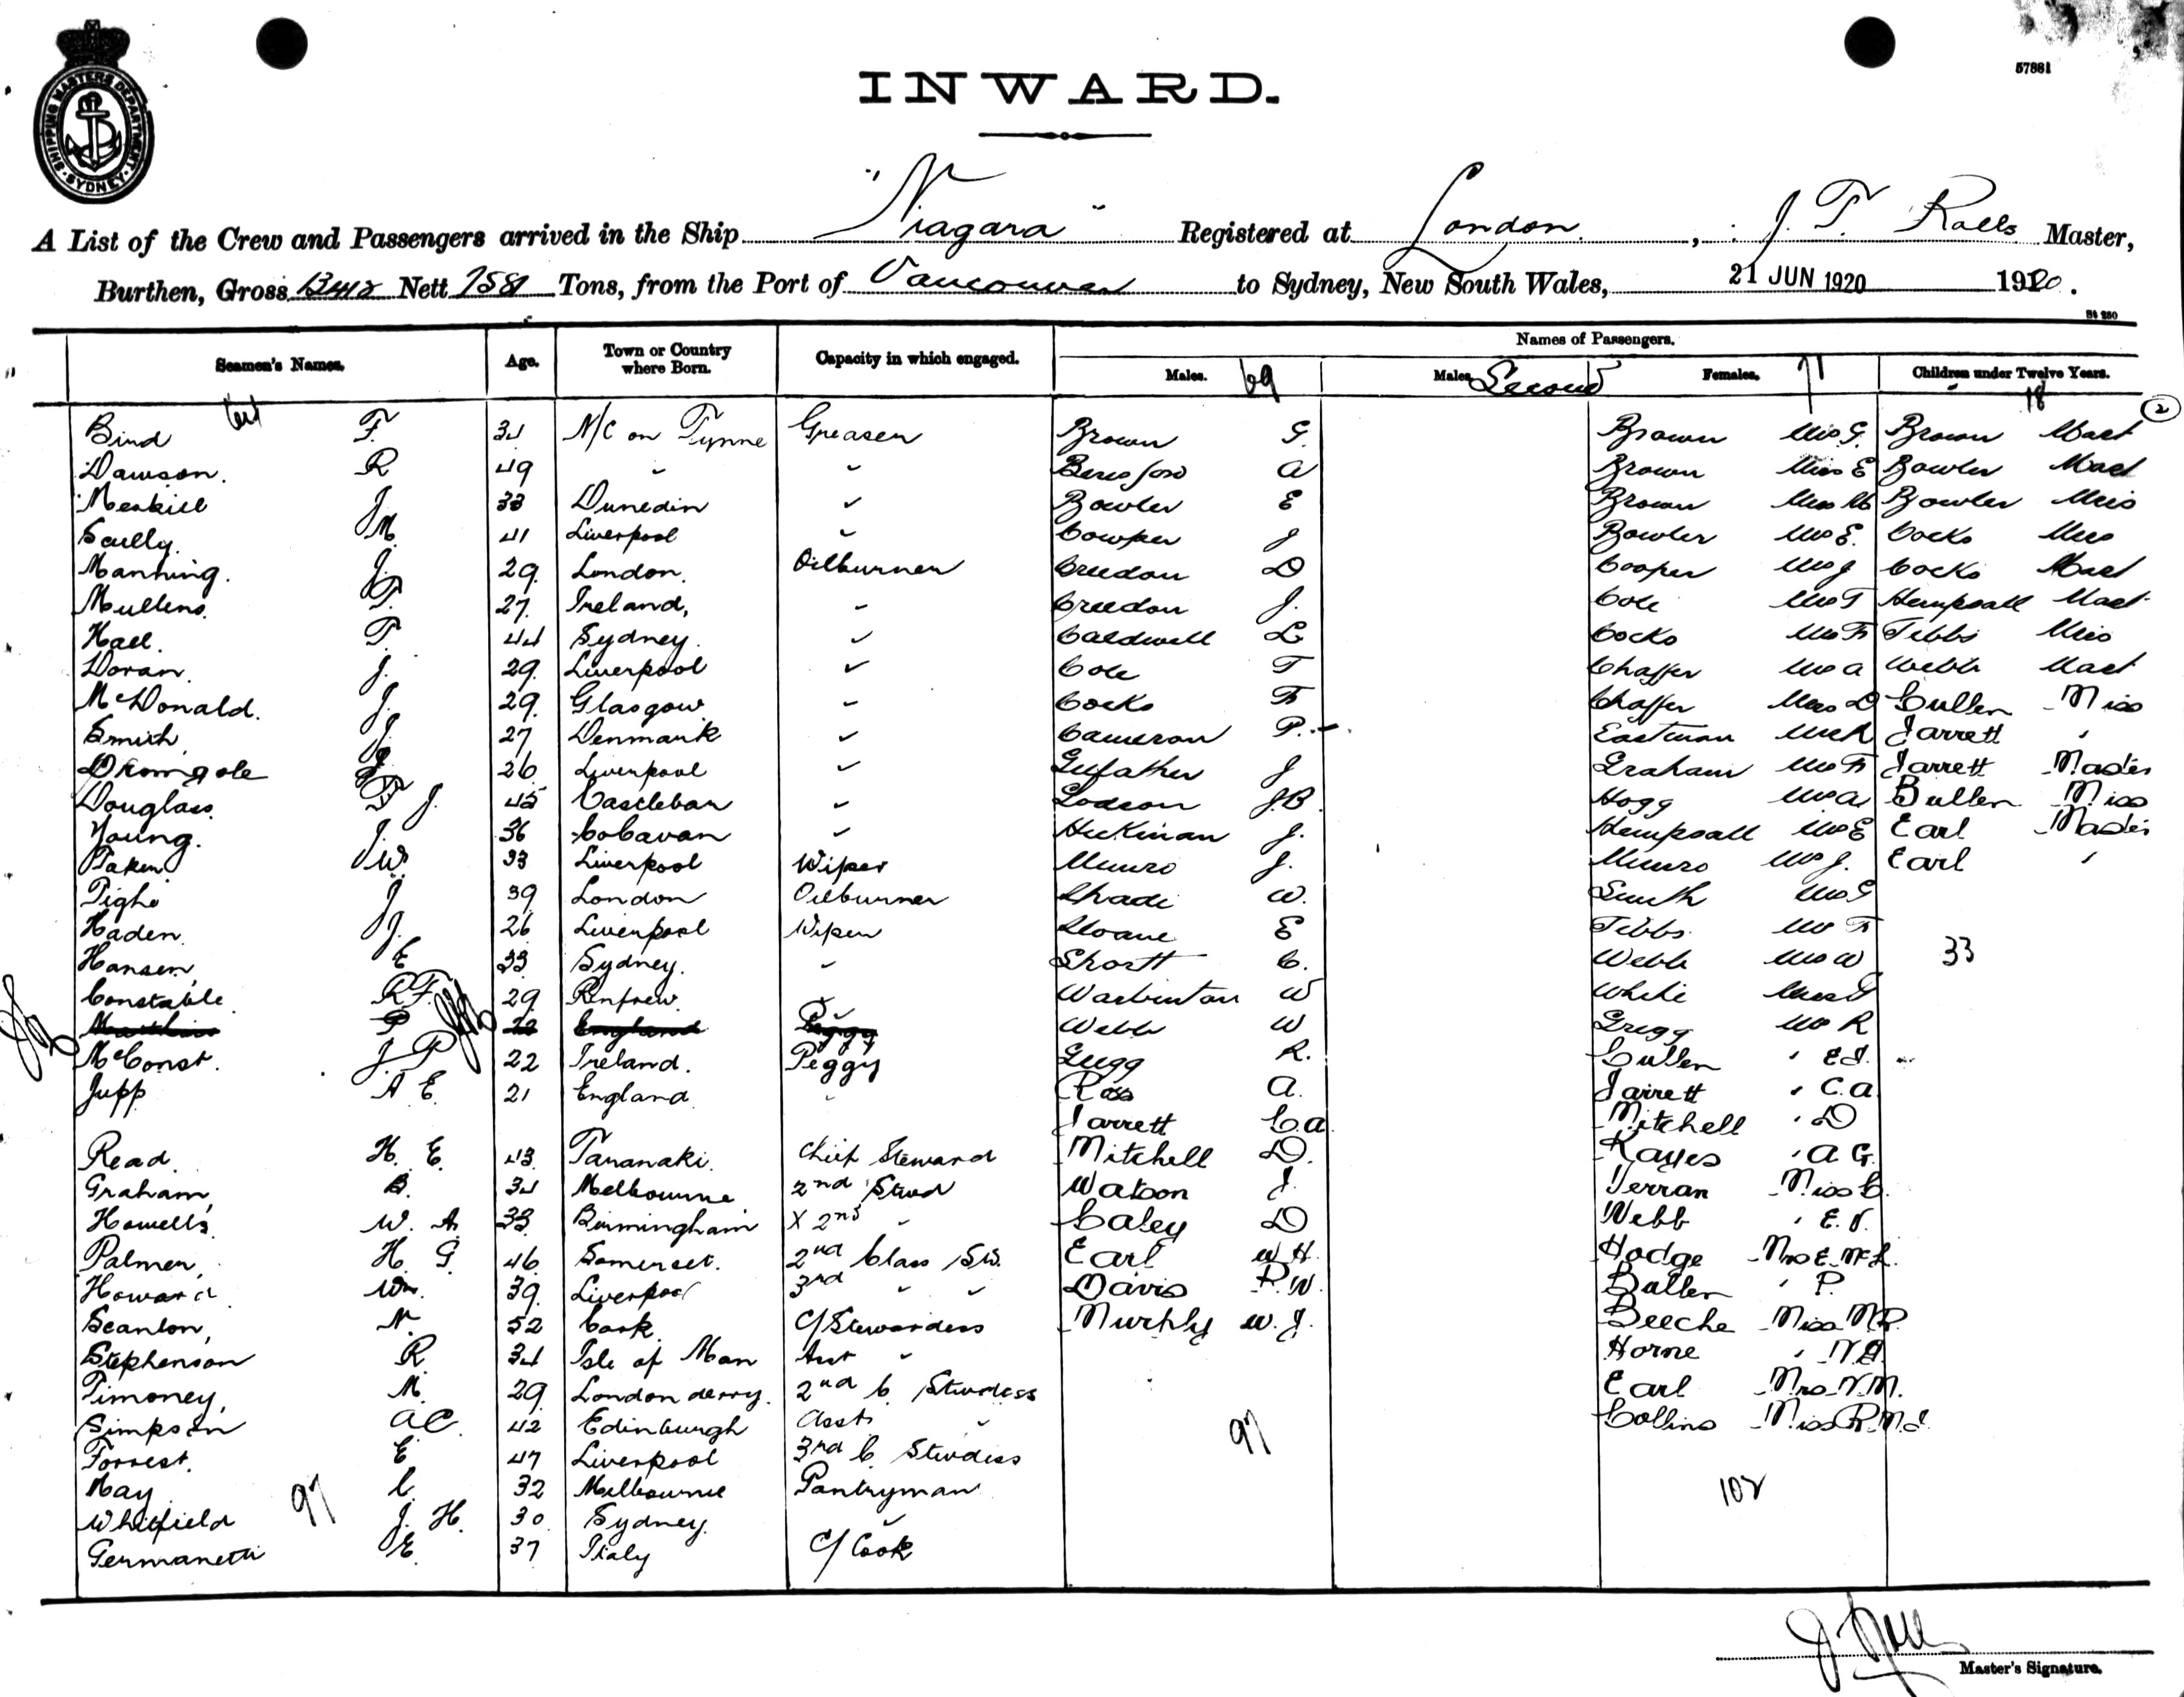 57881
SHIPPING MASTERS DEPARTMENT SYDNEY
INWARD.
A List of the Crew and Passengers arrived in the Ship "Niagara" Registered at London, J. T. Rolls Master,
Burthen, Gross 13415 Nett 7581 Tons, from the Port of Vancouver to Sydney, New South Wales, 21 JUN 1920 1920.
St 250
Names of Passengers.
Seamen's Names. Age. Town or Country where Born. Capacity in which engaged. Males. 69 Males. Second Females. 71 Children under Twelve Years.
18 2
F. 34 N/C on Tynne Greaser Brown G. Brown Mrs G. Brown Mast
Dawson. R 49 " " A Brown Miss E Bowler Mast
J. 33 Dunedin " Bowler E Brown Miss M Bowler Miss
Scully. M 41 Liverpool " Cowper J Bowler Mrs E. Cocks Miss
Manning. J. 29 London. Oilburner Creedon D Cooper Mrs J Cocks Mast
Mullens. P. 27 Ireland, " Creedon J. Cole Mrs T Hempsall Mast
Hall. T. 44 Sydney. " Caldwell L Cocks Mrs F Tibbs Miss
Doran. J. 29 Liverpool " Cole T Chaffer Mrs A Webb Mast
McDonald. J. 29. Glasgow " Cocks F Chaffer Miss D Cullen Miss
Smith J. 27 Denmark " Cameron P. Eastman Jarrett "
Dromgole 26 Liverpool " Gilfather J Graham Mrs F Jarrett Master
Douglass. F J. 45 Castlebar " J.B. Hogg Mrs A Bullen Miss
Young. J. 36 CoCavan " Hickman J. Hempsall Mrs E Earl Master
J.W. 33 Liverpool Wiper Munro J. Munro Mrs J. Earl "
Tighe J 39 London Oilburner W. Smith Mrs G
Haden J. 26 Liverpool Wiper Sloane E Tibbs. Mrs F
Hansen, E 33 Sydney. " Shortt C. Webb Mrs W 33
Constable R.F. 29 Renfrew. " Warbinton W White
P 22 England Peggy Webb W Gregg Mrs R
McConst. J. P 22 Ireland. Peggy Gregg R. Cullen " E.J.
Jupp A E. 21 England " Ross A. Jarrett " C.A.
Jarrett C.A. Mitchell " D
Read. H. E. 43 Taranaki. Chief Steward Mitchell D. Kayes " A G.
Graham, B. 34 Melbourne 2nd Stwd Watson J. Terran Miss C.
Howells. W. A. 33 Birmingham X 2nd " Caley D Webb " E. V.
Palmer, H. G 46 Somerset. 2nd Class Stw. Earl W.H. Hodge Mrs E. McL.
Howard Wm. 39. Liverpool 3rd " " Davis P.W. Bullen " P.
Scanlon, N. 52 Cork C/Stewardess Murphy W. J. Beeche Miss M.R.
Stephenson R 34 Isle of Man Asst " Horne
Timoney, M. 29 Londonderry. 2nd C. Stwdess Earl Mrs V.M.
Simpson A C. 42 Edinburgh Asst. " Collins Miss R.M.J.
Forrest. E 47 Liverpool 3rd C. Stwdess 97
May C 32 Melbourne Pantryman
97 102
Whitfield J. H. 30 Sydney. "
Germanetti E. 37 Italy C/ Cook
J Rolls
Master's Signature.